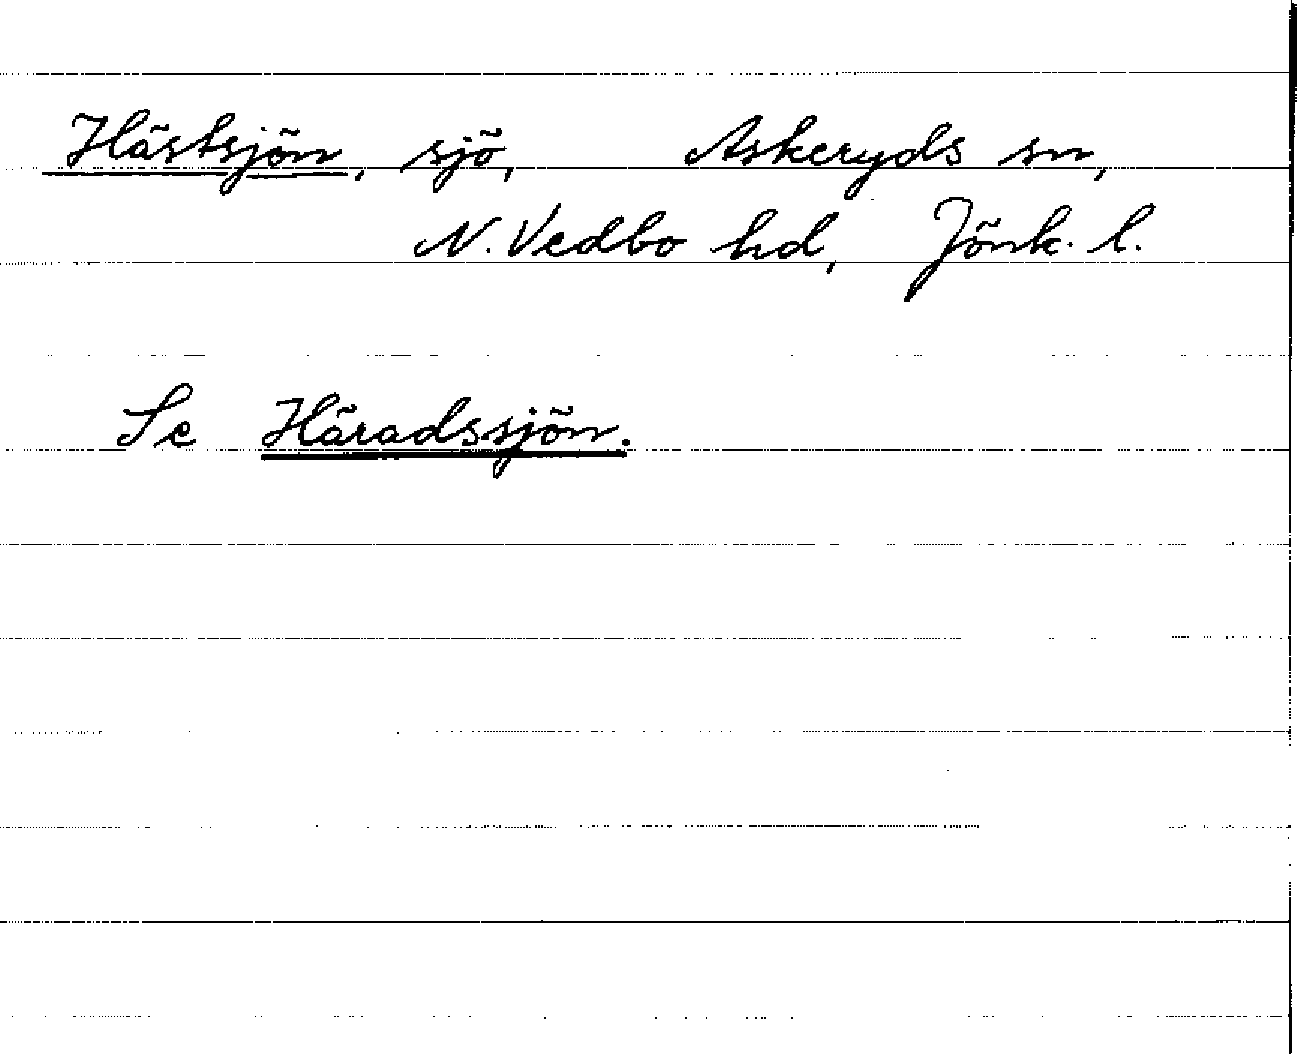 Hästsjön, sjö, Askeryds sn,
N. Vedbo hd, Jönk. l.
Se Häradssjön.